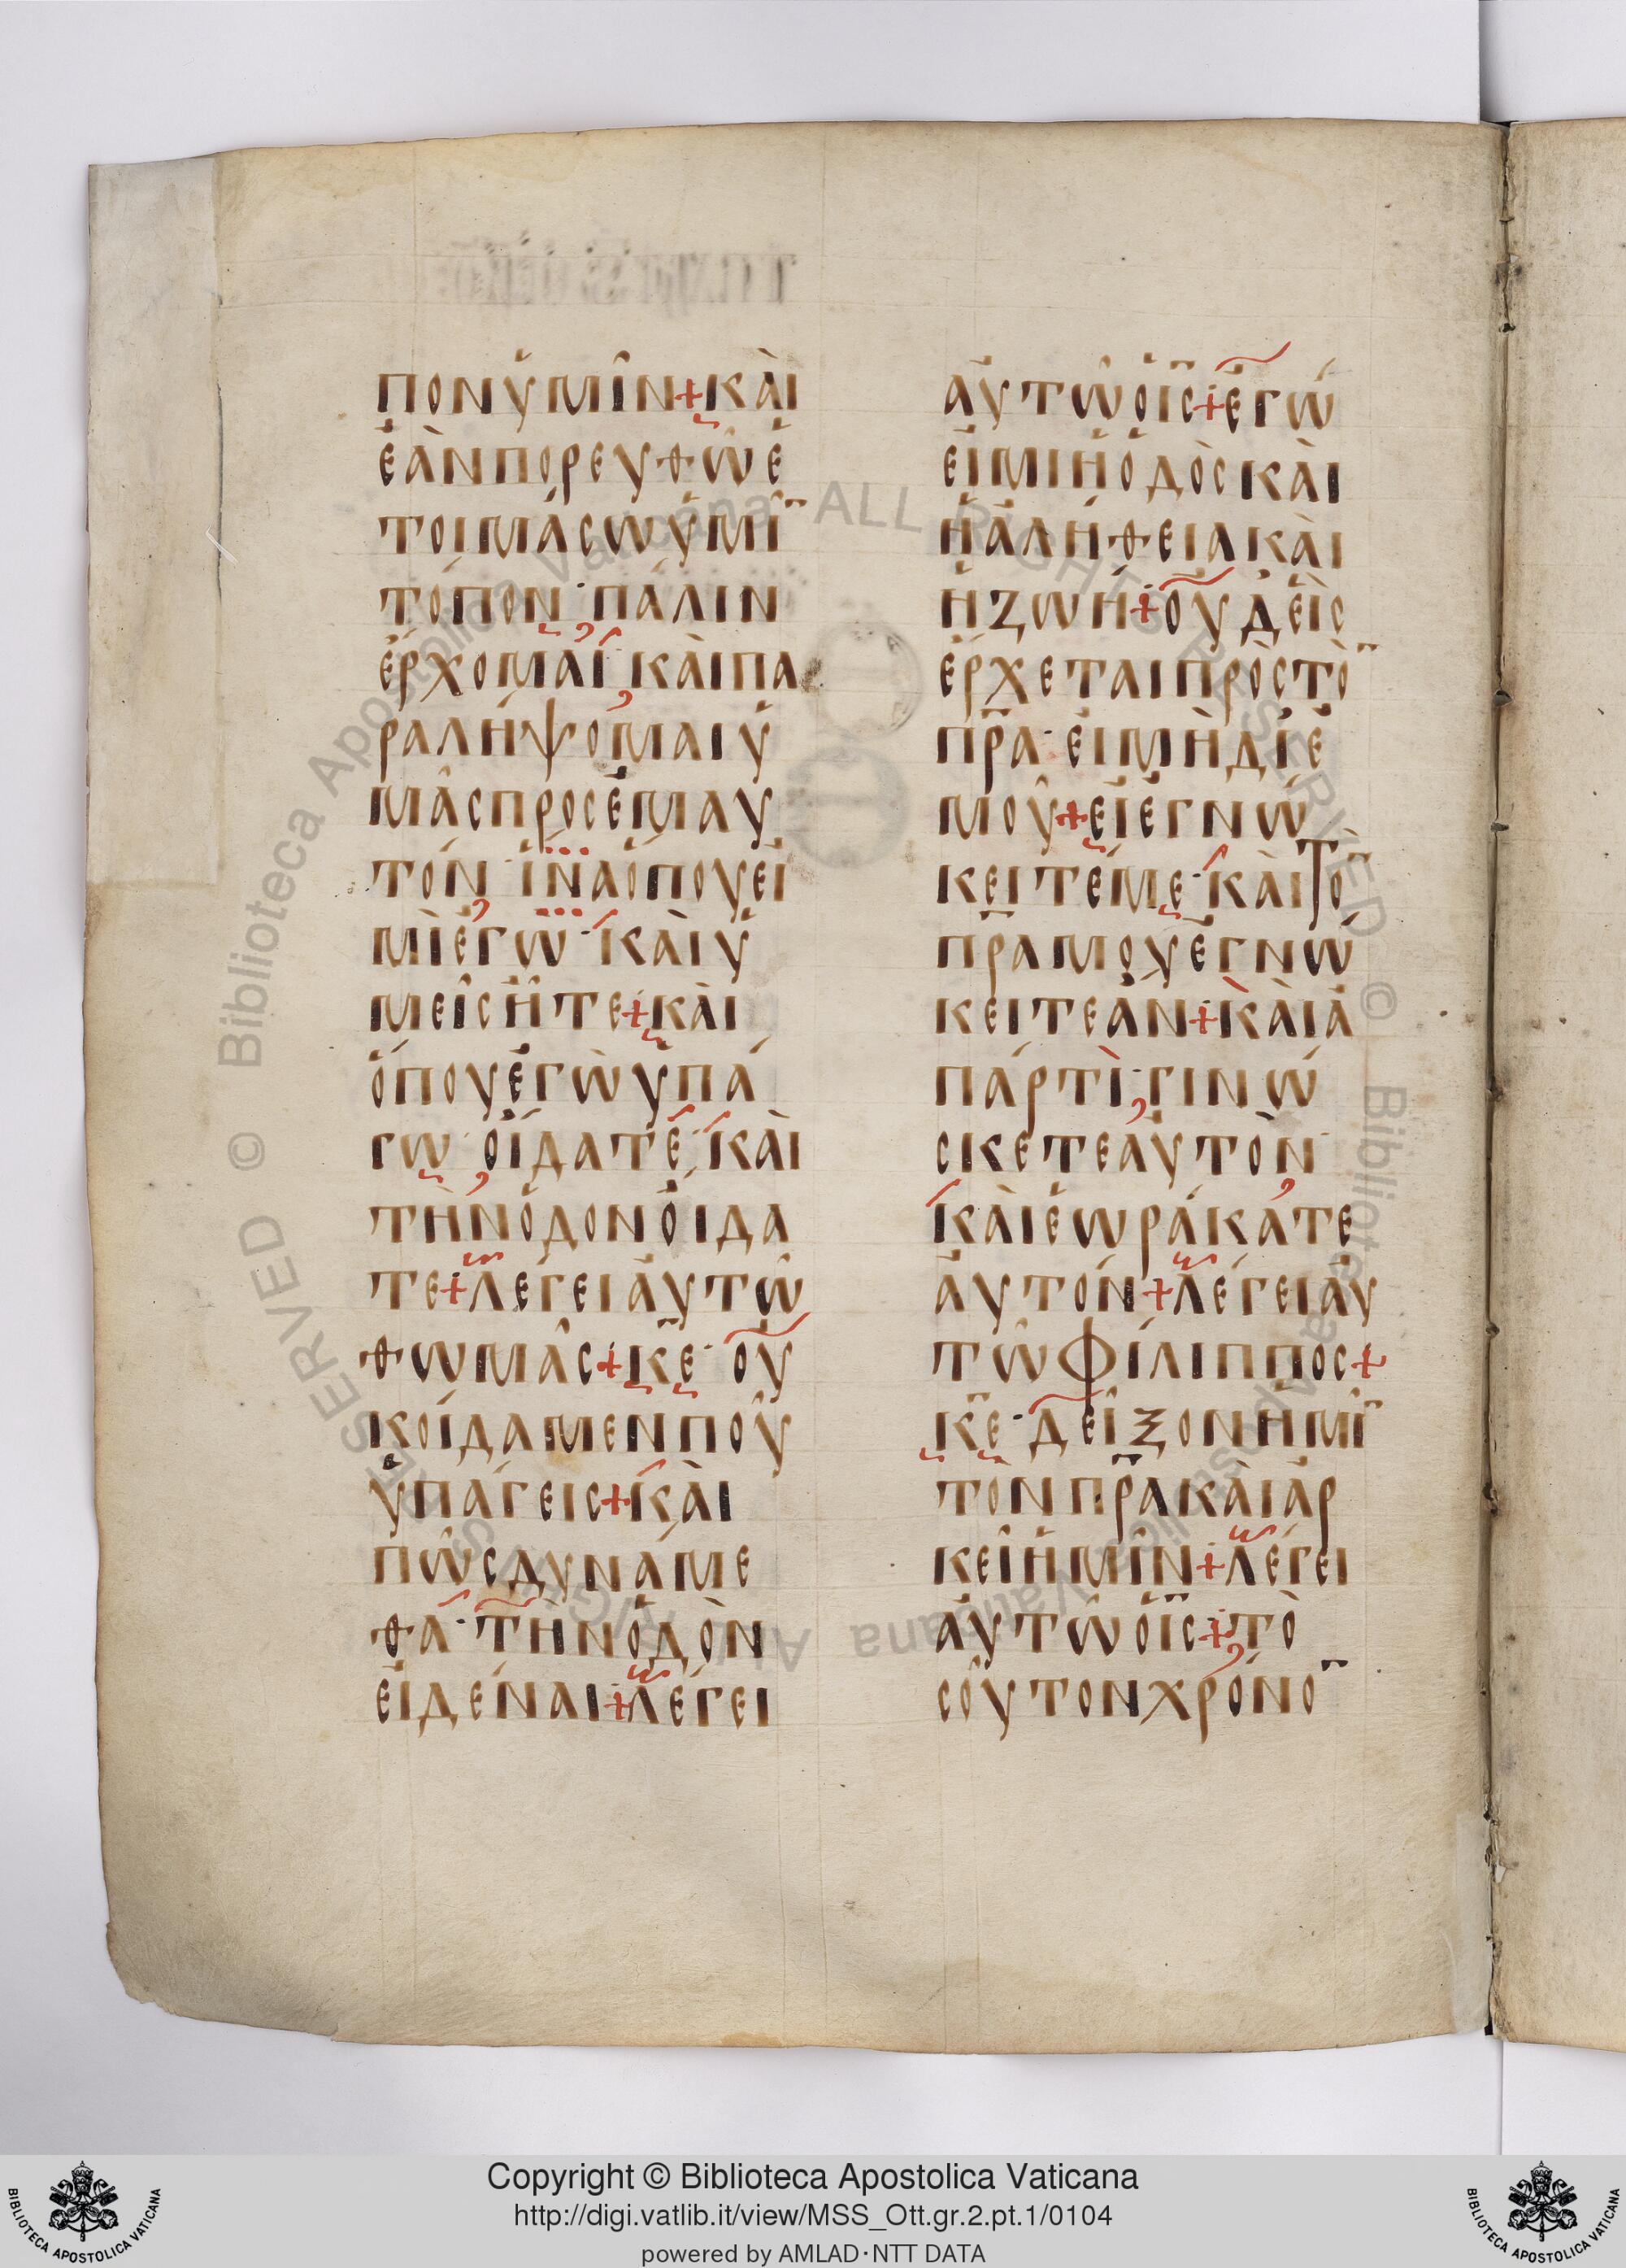 ΠΟΝΥ̓ΜΙ͂Ν+ΚΑῚ
ΕᾺΝΠΟΡΕΥΘΩ͂Ε
ΤΟΙΜΆCΩΥΜΙ̅
ΤΌΠΟΝ· ΠΆΛΙΝ
ΈΡΧΟΜΑΙ, ΚΑῚΠΑ
ΡΑΛΉΨΟΜΑΙΥ
ΜΑ͂CΠΡΟCΕΜΑΥ
ΤΌΝ· ΙΝΑΟΠΟΥΕΙ
ΜῚΕΓΩ· ΚΑῚΥ
ΜΕΙ͂CΗΤΕ+ΚΑῚ
ΌΠΟΥΕΓῺΥΠΆ
ΓΩ· ΟΙΔΑΤΕ· ΚΑῚ
ΤῊΝΟΔΟΝΟΙΔΑ
ΤΕ+ΛΈΓΕΙΑΥΤΩ͂
ΘΩΜΑ͂C+Κ̅Ε̅· ΟΥ
ΚΟΊΔΑΜΕΝΠΟΥ͂
ΥΠΆΓΕΙC+ΚΑῚ
ΠΩ͂CΔΥΝΆΜΕ
ΘΑ· ΤῊΝΟΔῸΝ
ΕΙΔΈΝΑΙ+ΛΈΓΕΙ
ΑΥΤΩ͂ΟΙ̅C̅+ΕΓΏ
ΕΙΜΙΗΟΔῸCΚΑῚ
ΗΑΛΉΘΕΙΑΚΑῚ
ΗΖΩΉ+ΟΥΔΕῚC
ΈΡΧΕΤΑΙΠΡῸCΤῸ̅
Π̅Ρ̅Α· ΕΙΜῊΔΙΕ
ΜΟΥ͂+ΕΙΕΓΝΏ
ΚΕΙΤΈΜΕ· ΚΑῚΤῸ̅
Π̅Ρ̅ΑΜΟΥΕΓΝΏ
ΚΕΙΤΕΑΝ+ΚΑῚΑ
ΠΆΡΤΙ· ΓΙΝΏ
CΚΕΤΕΑΥΤῸΝ·
ΚΑῚΕΩΡΆΚΑΤΕ
ΑΥΤΌΝ+ΛΈΓΕΙΑΥ
ΤΩ͂ΦΊΛΙΠΠΟC+
Κ̅Ε̅· ΔΕΙ͂ΞΟΝΗΜΙ͂̅
ΤῸΝΠ̅Ρ̅ΑΚΑῚΑΡ
ΚΕΙ͂ΗΜΙ͂Ν+ΛΈΓΕΙ
ΑΥΤΩ͂ΟΙ̅C̅+ΤῸ
CΟΥ͂ΤΟΝΧΡΌΝΟ̅
Copyright © Biblioteca Apostolica Vaticana
http://digi.vatlib.it/view/MSS_Ott.gr.2.pt.1/0104
powered by AMLAD·NTT DATA
BIBLIOTECA APOSTOLICA VATICANA
BIBLIOTECA APOSTOLICA VATICANA